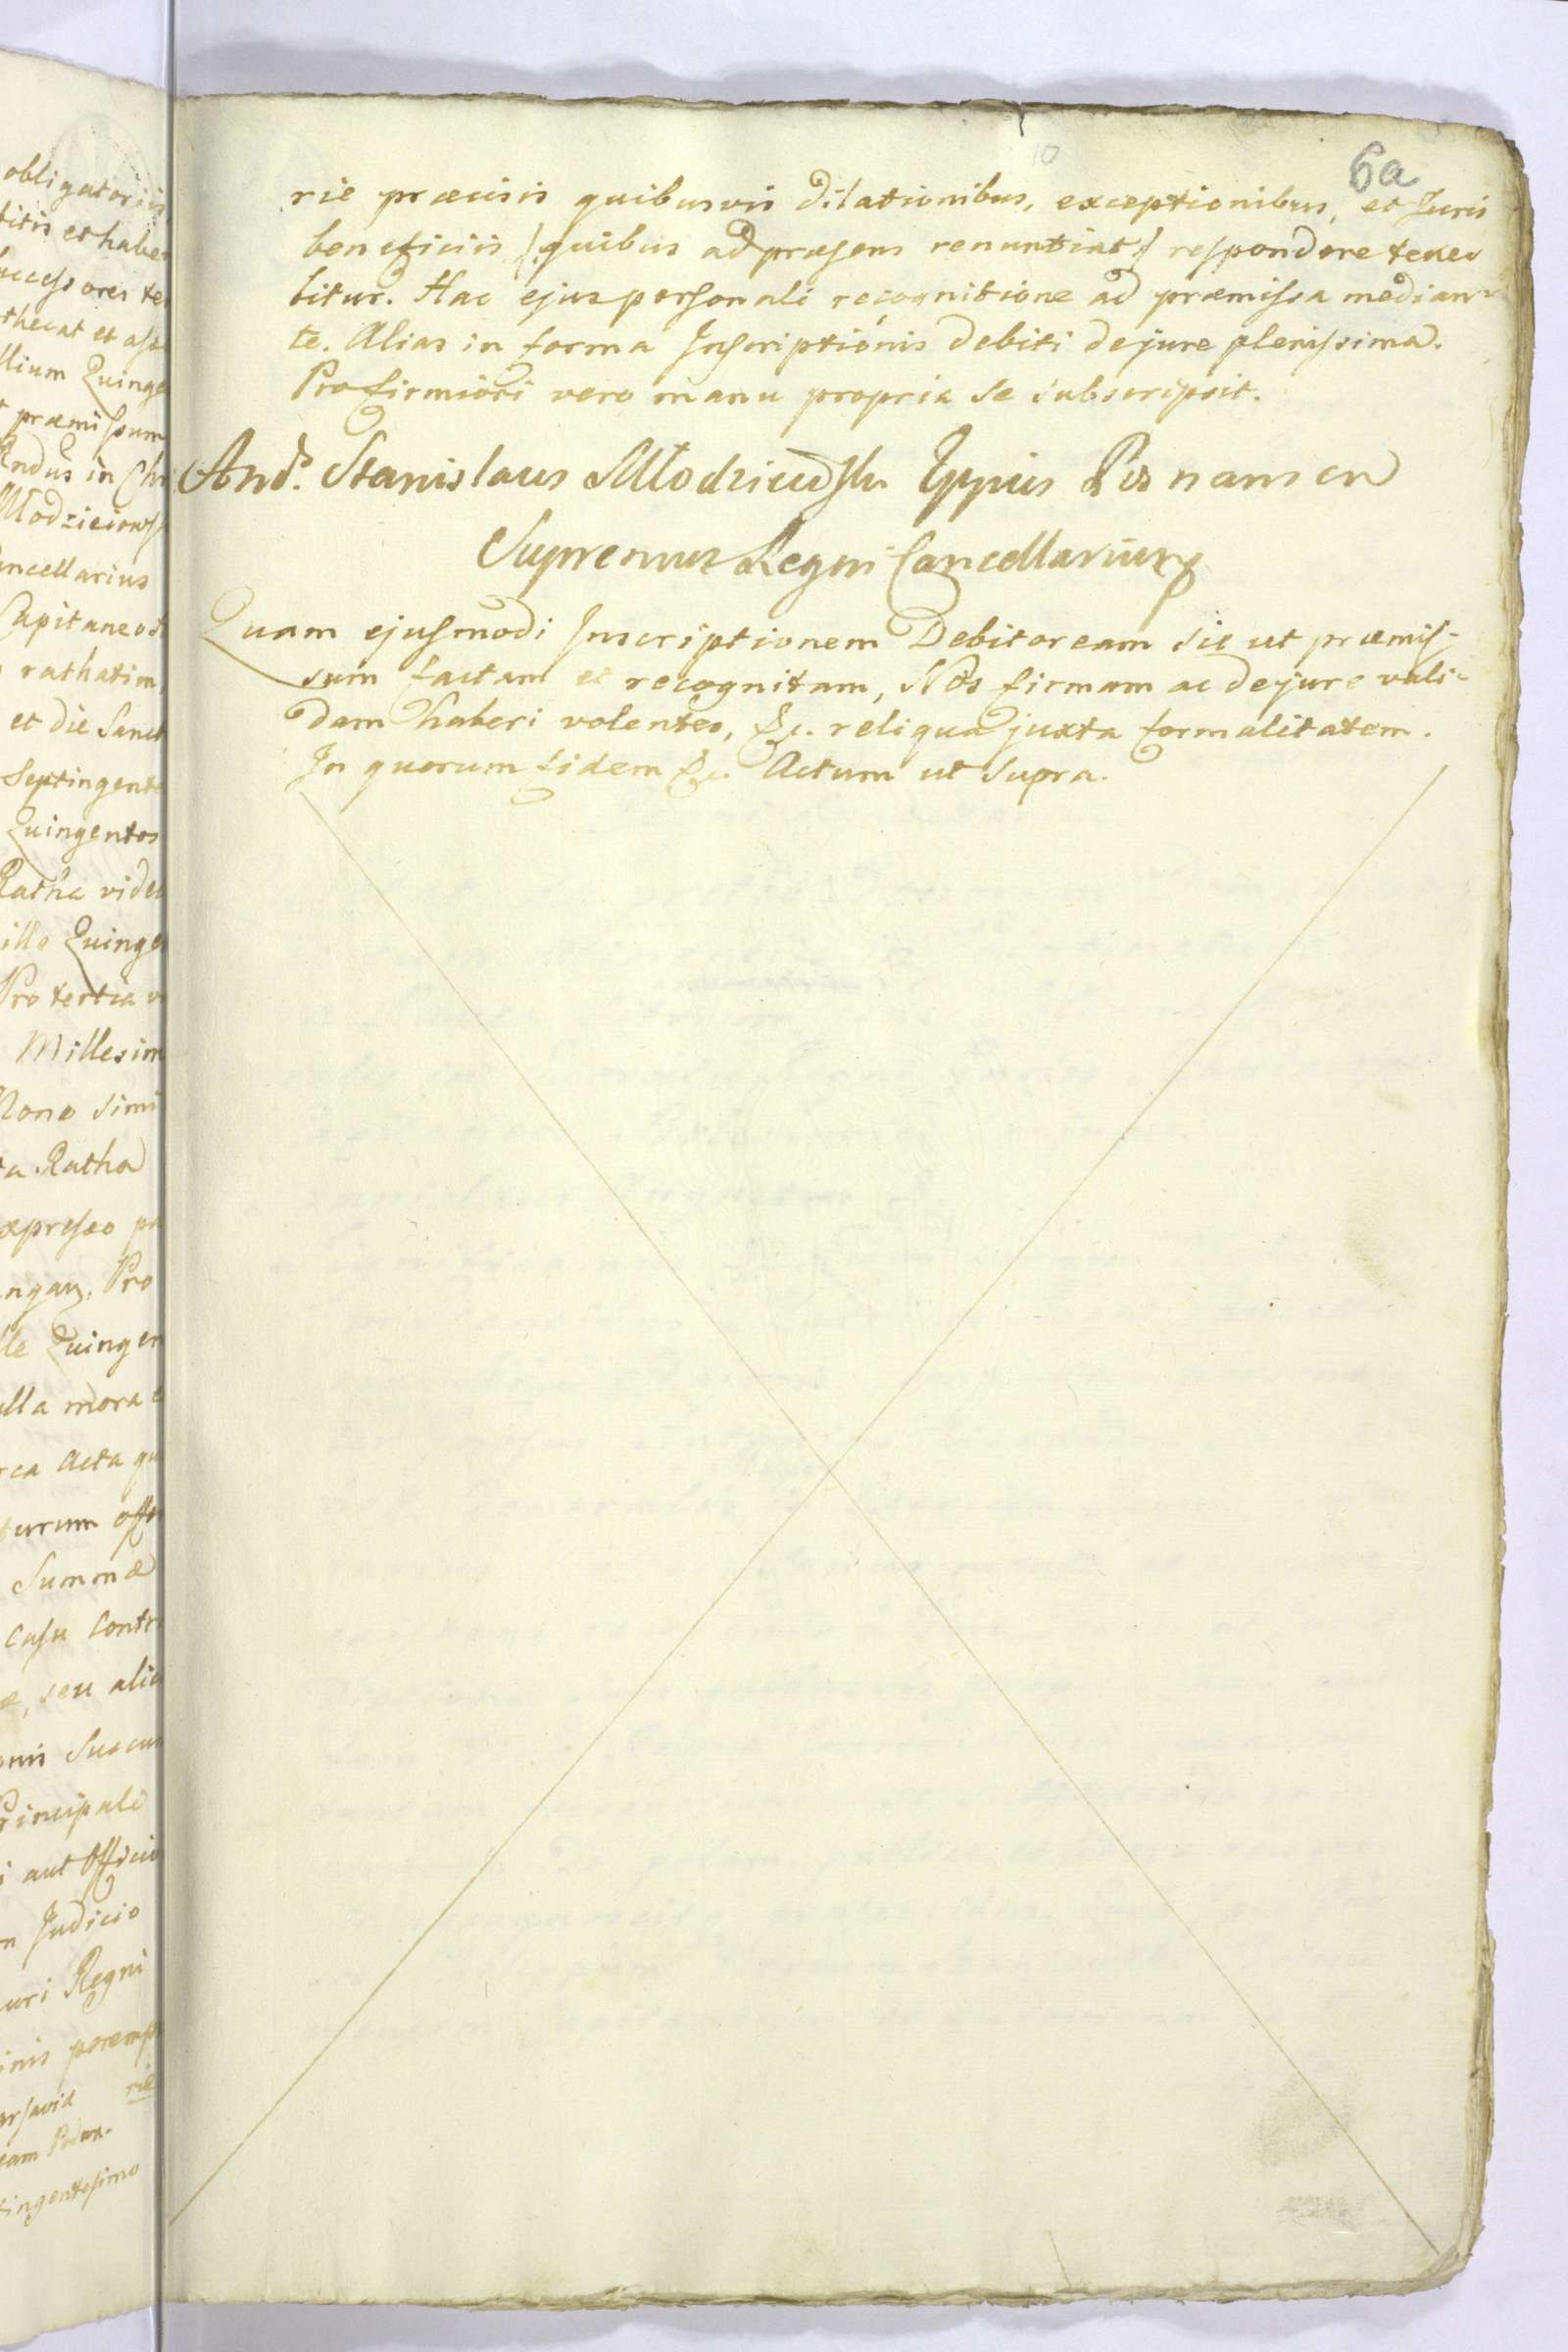 obligatoriis
titis et habe
uccessores te
thecat et ass
llium Quinge
præmissum
Andus in Chr
Mlodzieiows
ancellarius
Capitaneos
rathatim
et die Sanct
Septingente
Quingentos
Ratha vide
ille Quinge
Pro tertia v
Millesim
Nono simi
ta Ratha
expresso pr
ngar. Pro
lle Quingen
ulla mora
rca Acta qu
turum offe
Summæ
Casu Contr
æ, seu alio
Principale
i aut Officio
n Judicio
uri Regni
inis peremp
rie
tingentesimo
10
6a
rie præcisis quibusvis dilationibus, exceptionibus, et Juris
beneficiis /:quibus ad præsens renuntiat:/ respondere tene
bitur. Hac ejus personali recognitione ad præmissa median
te. Alias in forma Inscriptionis Debiti de jure plenissima.
Pro firmiori vero manu propria se subscripsit.
And. Stanislaus Młodzieiowski Eppus Posnanien
Supremus Regni Cancellarius
Quam ejusmodi Inscriptionem Debitoream sic ut præmis-
sum factam et recognitam, Nos firmam ac de jure vali-
dam haberi volentes, &c. reliqua juxta formalitatem.
In quorum fidem &c. Actum ut Supra.